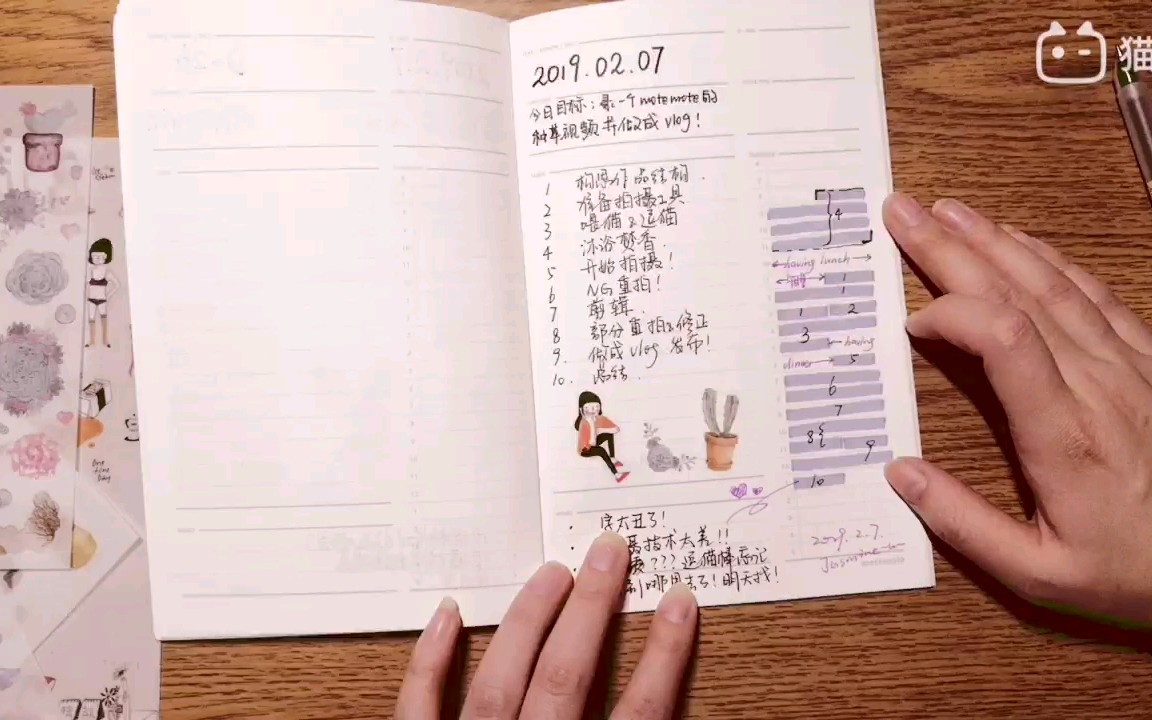 2019.02.07
今日目标：录一个motemote的
种草视频并做成vlog！
1 构思作品结构.
2 准备拍摄工具
3 喂猫&逗猫
4 沐浴焚香.
5 开始拍摄！
6 NG重拍！
7 剪辑.
8 部分重拍&修正
9. 做成vlog 发布！
10. 总结.
· 字太丑了！
技术太差！！
？？？逗猫棒忘记
哪里去了！明天找！
4
having lunch
1
1
1 2
3
having
dinner 5
6
7
8 9
10
2019.2.7.
Jasmine
motemote
猫